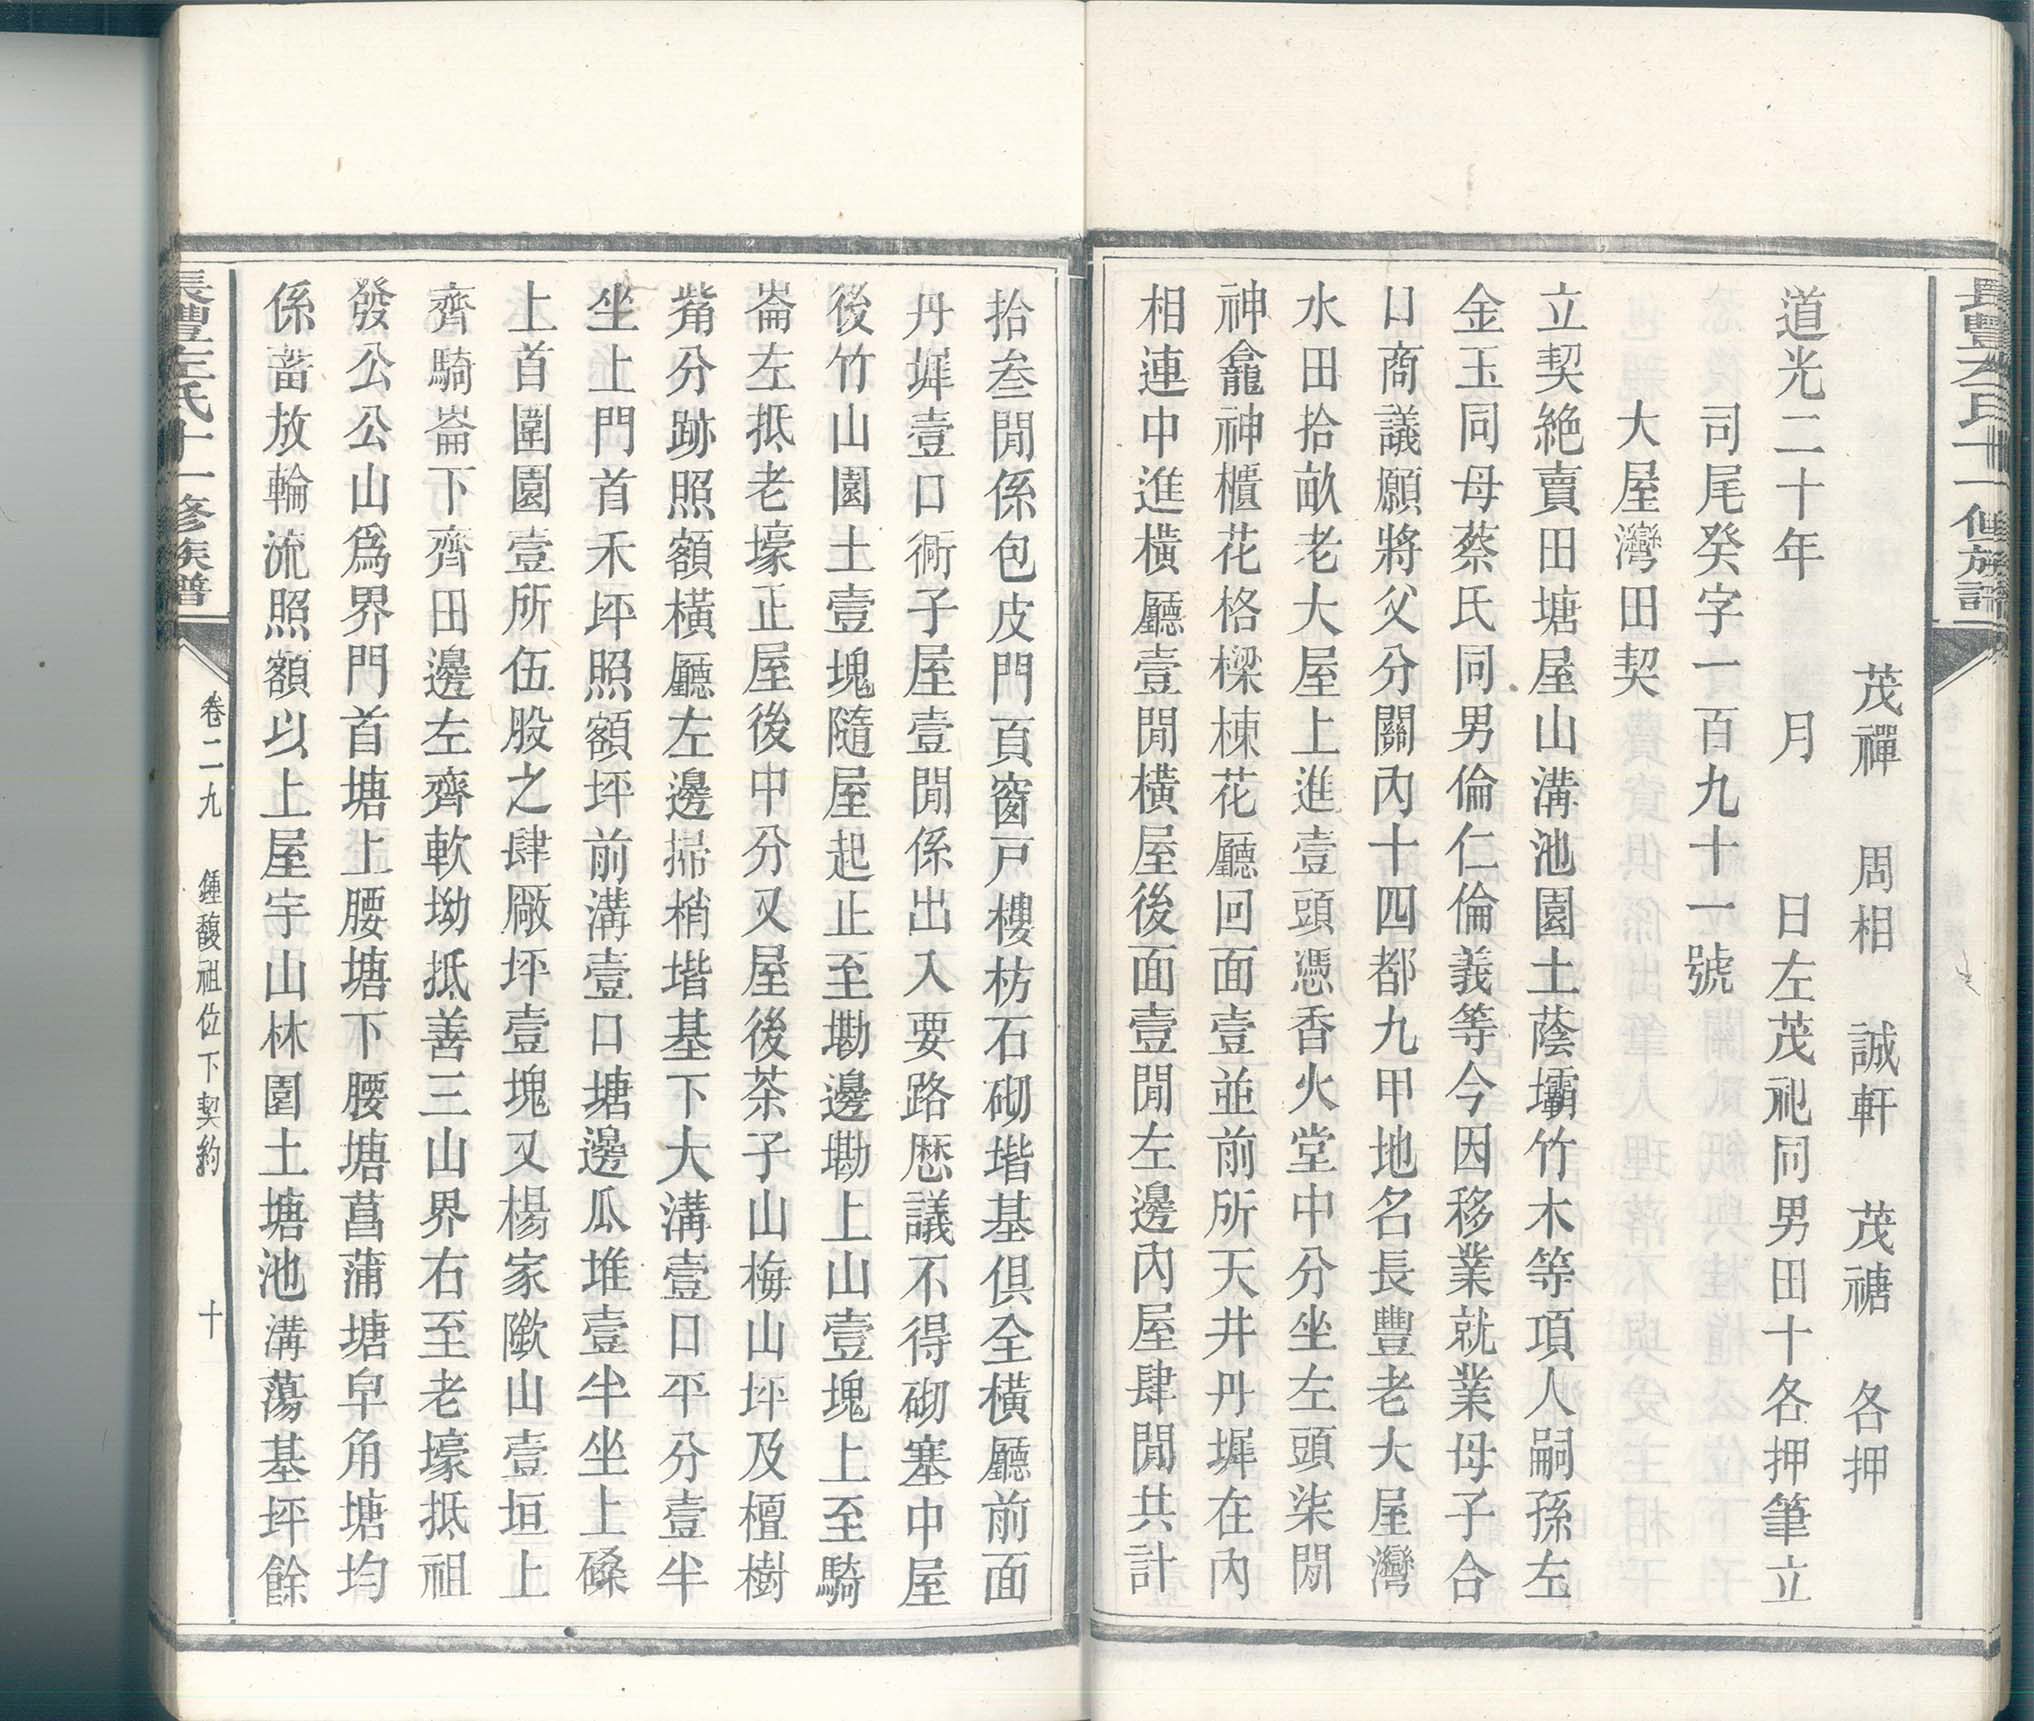 茂禪　周相　誠軒　茂禟　各押
道光二十年　月　日左茂祂同男田十各押筆立
司尾癸字一百九十一號
大屋灣田契
立契絶賣田塘屋山溝池園土蔭壩竹木等項人嗣孫左
金玉同母蔡氏同男倫仁倫義等今因移業就業母子合
口商議願將父分關內十四都九甲地名長豐老大屋灣
水田拾畝老大屋上進壹頭憑香火堂中分坐左頭柒閒
神龕神櫃花格樑棟花廳回面壹並前所天井丹墀在內
相連中進橫廳壹閒橫屋後面壹閒左邊內屋肆閒共計
拾叁閒係包皮門頁窗戸樓枋石砌堦基俱全橫廳前面
丹墀壹口衖子屋壹閒係出入要路厯議不得砌塞中屋
後竹山園土壹塊隨屋起止至磡邊磡上山壹塊上至騎
崙左抵老壕正屋後中分又屋後茶子山梅山坪及檀樹
觜分跡照額橫廳左邊掃梢堦基下大溝壹口平分壹半
坐上門首禾坪照額坪前溝壹口塘邊瓜堆壹半坐上磉
上首圍園壹所伍股之肆厰坪壹塊又楊家隞山壹垣上
齊騎崙下齊田邊左齊軟坳抵善三山界右至老壕抵祖
發公公山爲界門首塘上腰塘下腰塘菖蒲塘皁角塘均
係畜放輪流照額以上屋宇山林園土塘池溝蕩基坪餘
長豐左氏十一修族譜
卷二九　鍾馥祖位下契約　十